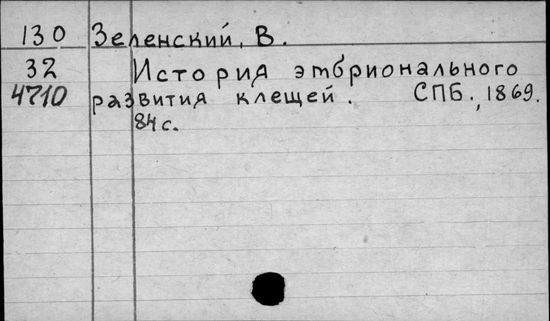 130 Зеленский, В.
32 История эмбрионального
4710 развития клещей. СПБ., 1869.
84 с.